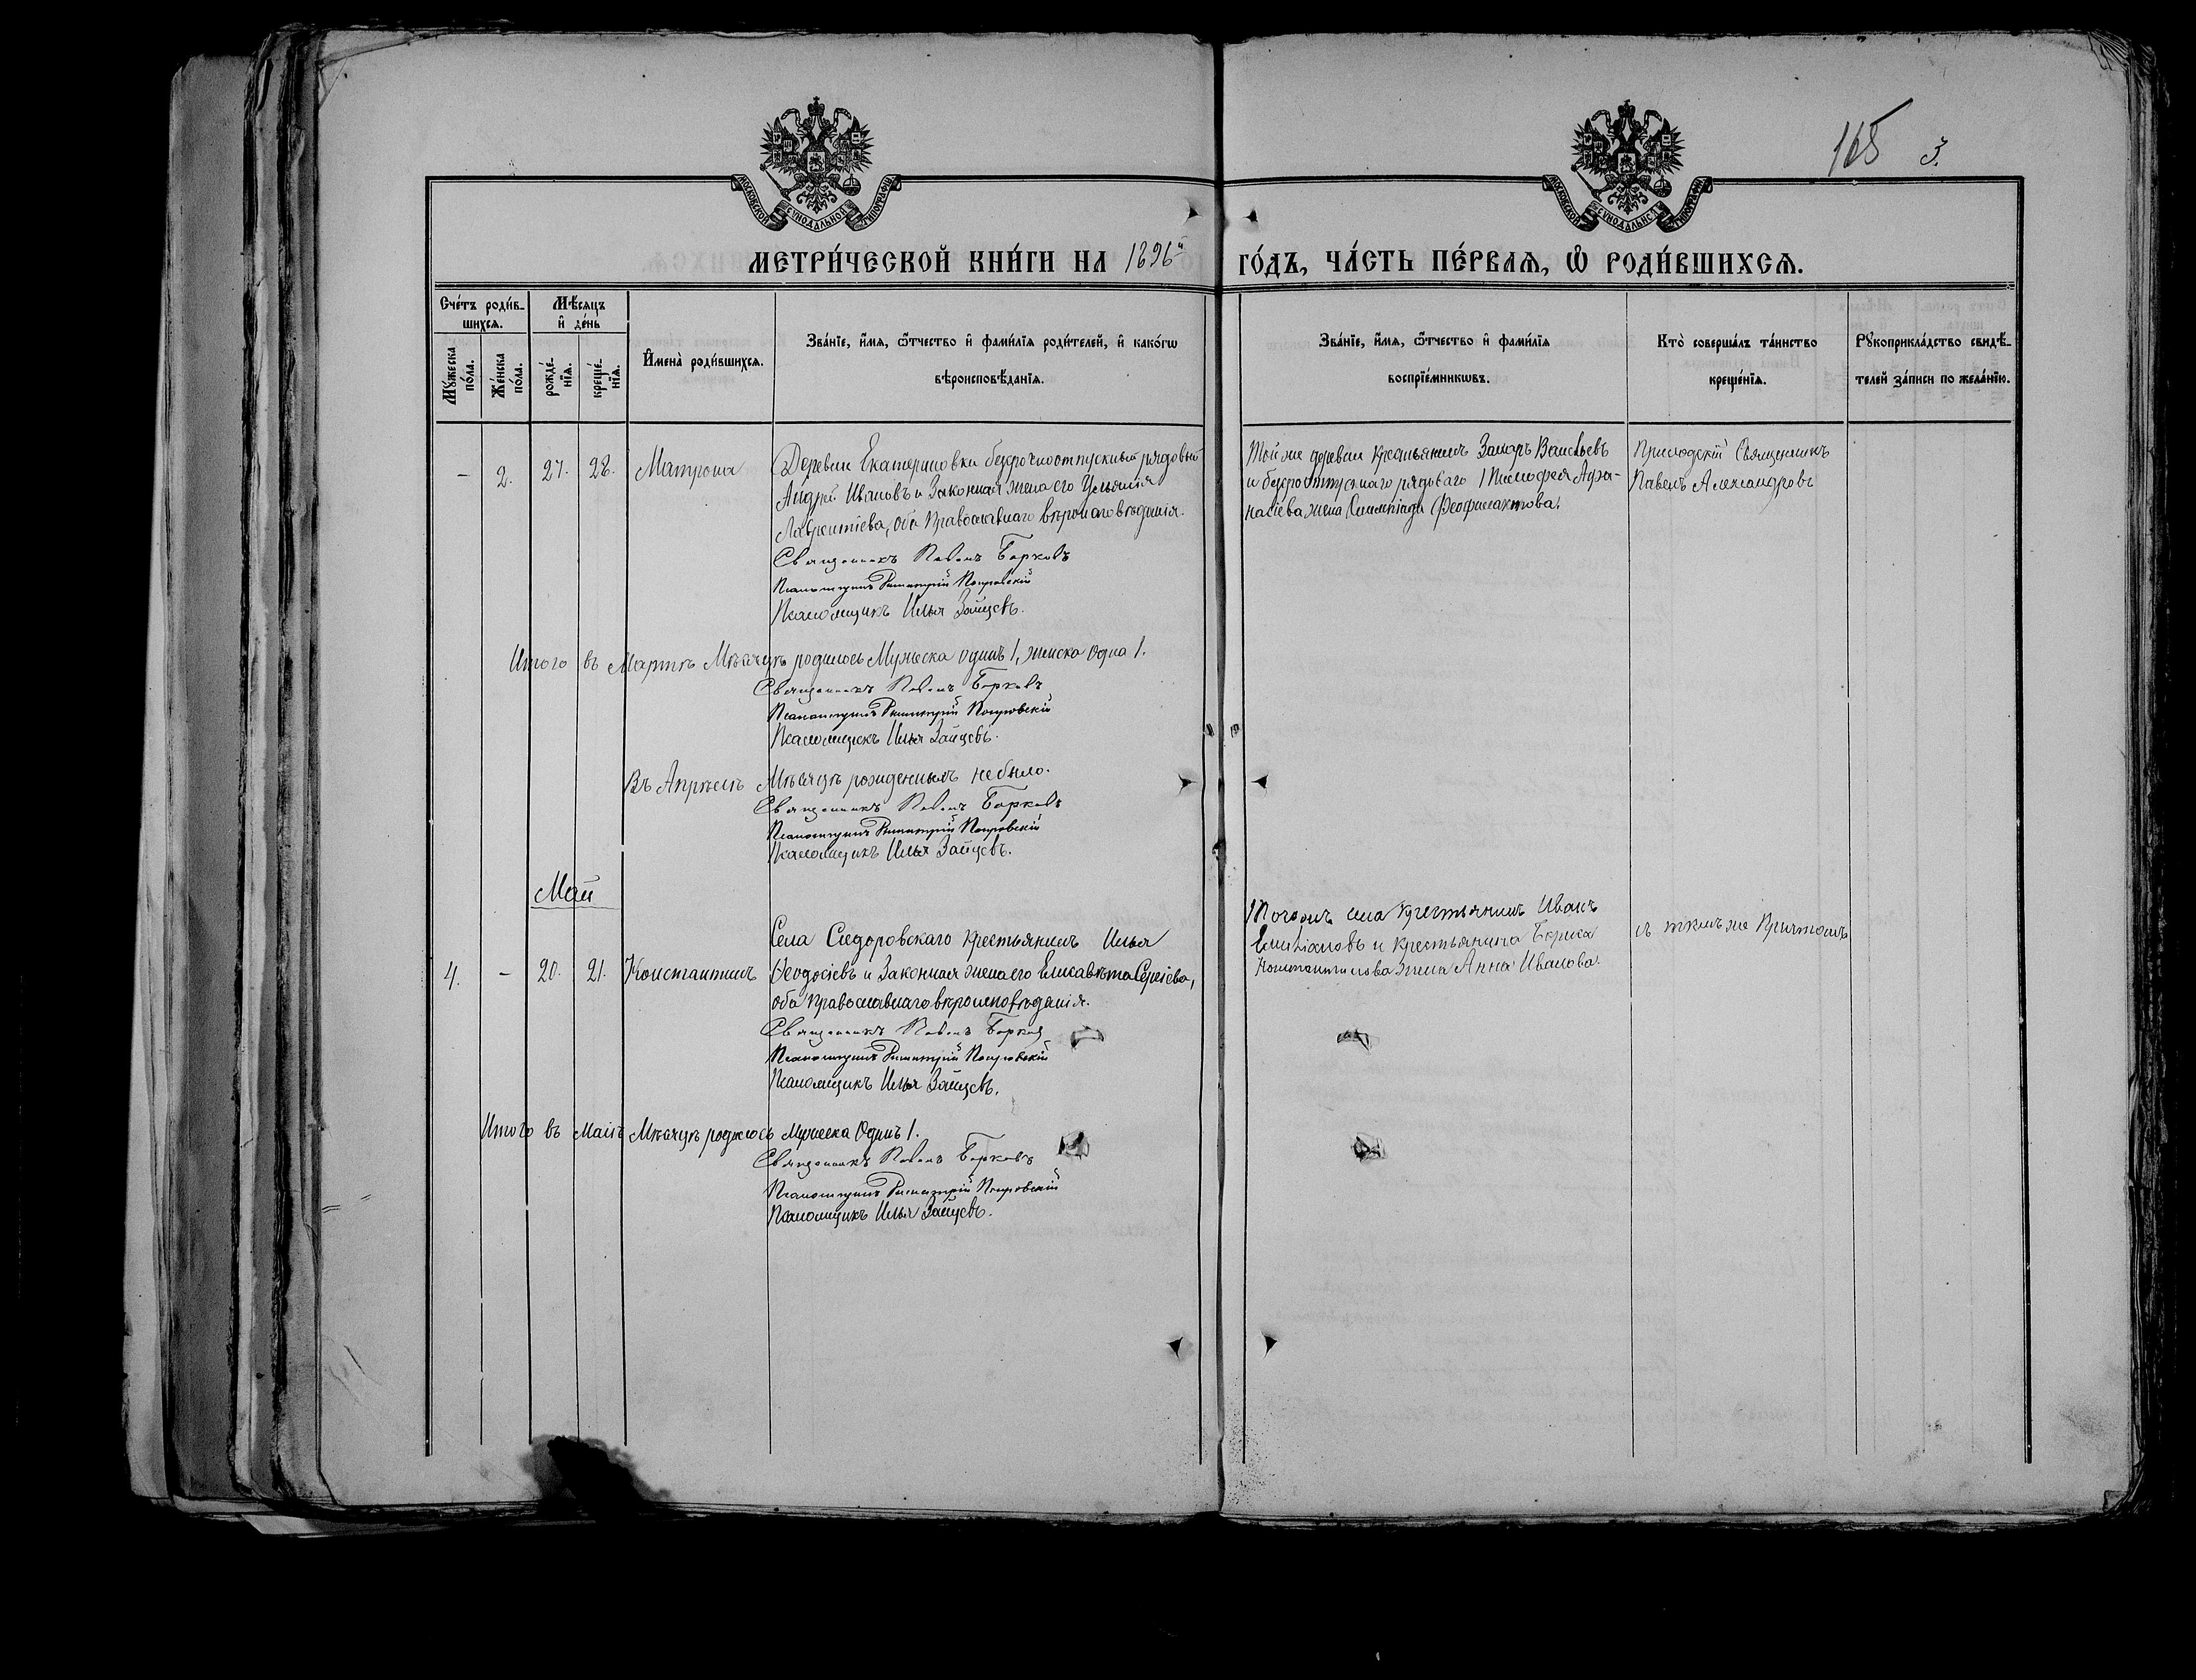 165 3.
МОСКОВСКОЙ СѴНОДАЛЬНОЙ ТИПОГРАФІИ
МОСКОВСКОЙ СѴНОДАЛЬНОЙ ТИПОГРАФІИ
МЕТРИ́ЧЕСКОЙ КНИ́ГИ НА 1896й ГО́ДЪ, ЧА́СТЬ ПЕ́РВАѦ, Ѡ РОДИ́ВШИХСѦ.
Сче́тъ роди́в-
шихсѧ.
Мѣ́сѧцъ
и҆ де́нь
Мꙋ́жеска
по́ла.
Же́нска
по́ла.
рожде́-
нїѧ.
креще́-
нїѧ.
И҆мена̀ роди́вшихсѧ.
Зва́нїе, и҆́мѧ, ѻ҆́тчество и҆ фами́лїѧ роди́телей, и҆ како́гѡ
вѣроисповѣ́данїѧ.
Зва́нїе, и҆́мѧ, ѻ҆́тчество и҆ фами́лїѧ
воспрїе́мникѡвъ.
Кто̀ соверша́лъ та́инство
креще́нїѧ.
Рꙋкоприкла́дство свидѣ́-
телей за́писи по жела́нїю.
— 2. 27. 28. Матрона
Деревни Екатериновки безсрочноотпускный рядовый
Андрей Ивановъ и Законная жена его Ульянія
Лаврентіева, оба Православнаго вѣроисповѣданія.
Священникъ Павелъ Борковъ
Псаломщикъ Димитрій Покровскій
Псаломщикъ Илья Зайцевъ.
Той же деревни Крестьянинъ Захаръ Васильевъ
и безсрочноотпускнаго рядоваго Тимофея Афа-
насіева жена Олимпіада Феофилактова.
Приходскій Священникъ
Павелъ Александровъ
Итого въ Мартѣ Мѣсяцѣ родилось Мужеска одинъ 1, женска одна 1.
Священникъ Павелъ Борковъ
Псаломщикъ Димитрій Покровскій
Псаломщикъ Илья Зайцевъ.
Въ Апрѣлѣ Мѣсяцѣ рожденныхъ не было.
Священникъ Павелъ Борковъ
Псаломщикъ Димитрій Покровскій
Псаломщикъ Илья Зайцевъ.
Май
4. — 20. 21. Константинъ
Села Сидоровскаго крестьянинъ Илья
Ѳеодосіевъ и Законная жена его Елисавѣта Сергіева,
оба Православнаго вѣроисповѣданія.
Священникъ Павелъ Борковъ
Псаломщикъ Димитрій Покровскій
Псаломщикъ Илья Зайцевъ.
села крестьянинъ Иванъ
Емиліановъ и крестьянина Бориса
Константинова жена Анна Иванова.
съ тѣмъ же Причтомъ
Итого въ Маѣ Мѣсяцѣ родилось Мужеска Одинъ 1.
Священникъ Павелъ Борковъ
Псаломщикъ Димитрій Покровскій
Псаломщикъ Илья Зайцевъ.